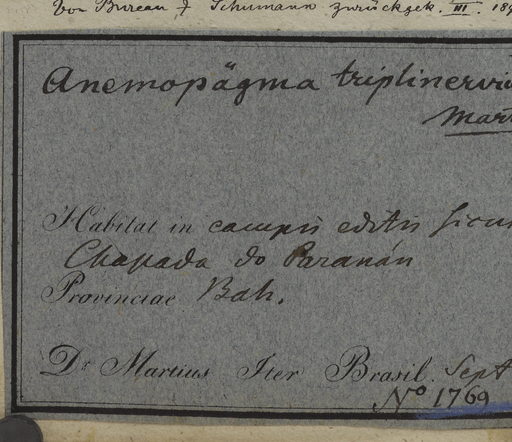 Von Bureau & Schumann zurückgek. III. 189
Anemopägma triplinervi
Mart
Habitat in campis editis sicu
Chapada do Paranán
Provinciae Bah.
Dr Martius Iter Brasil. Sept
No 1769